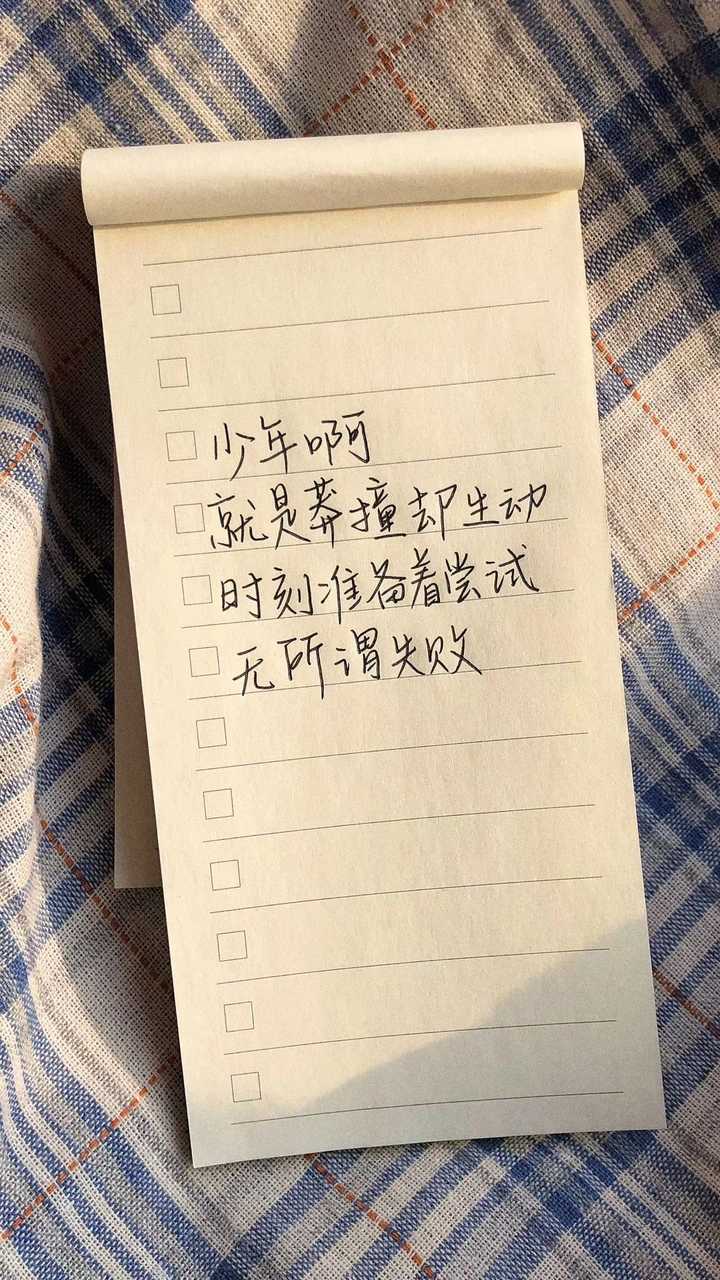 少年啊
就是莽撞却生动
时刻准备着尝试
无所谓失败